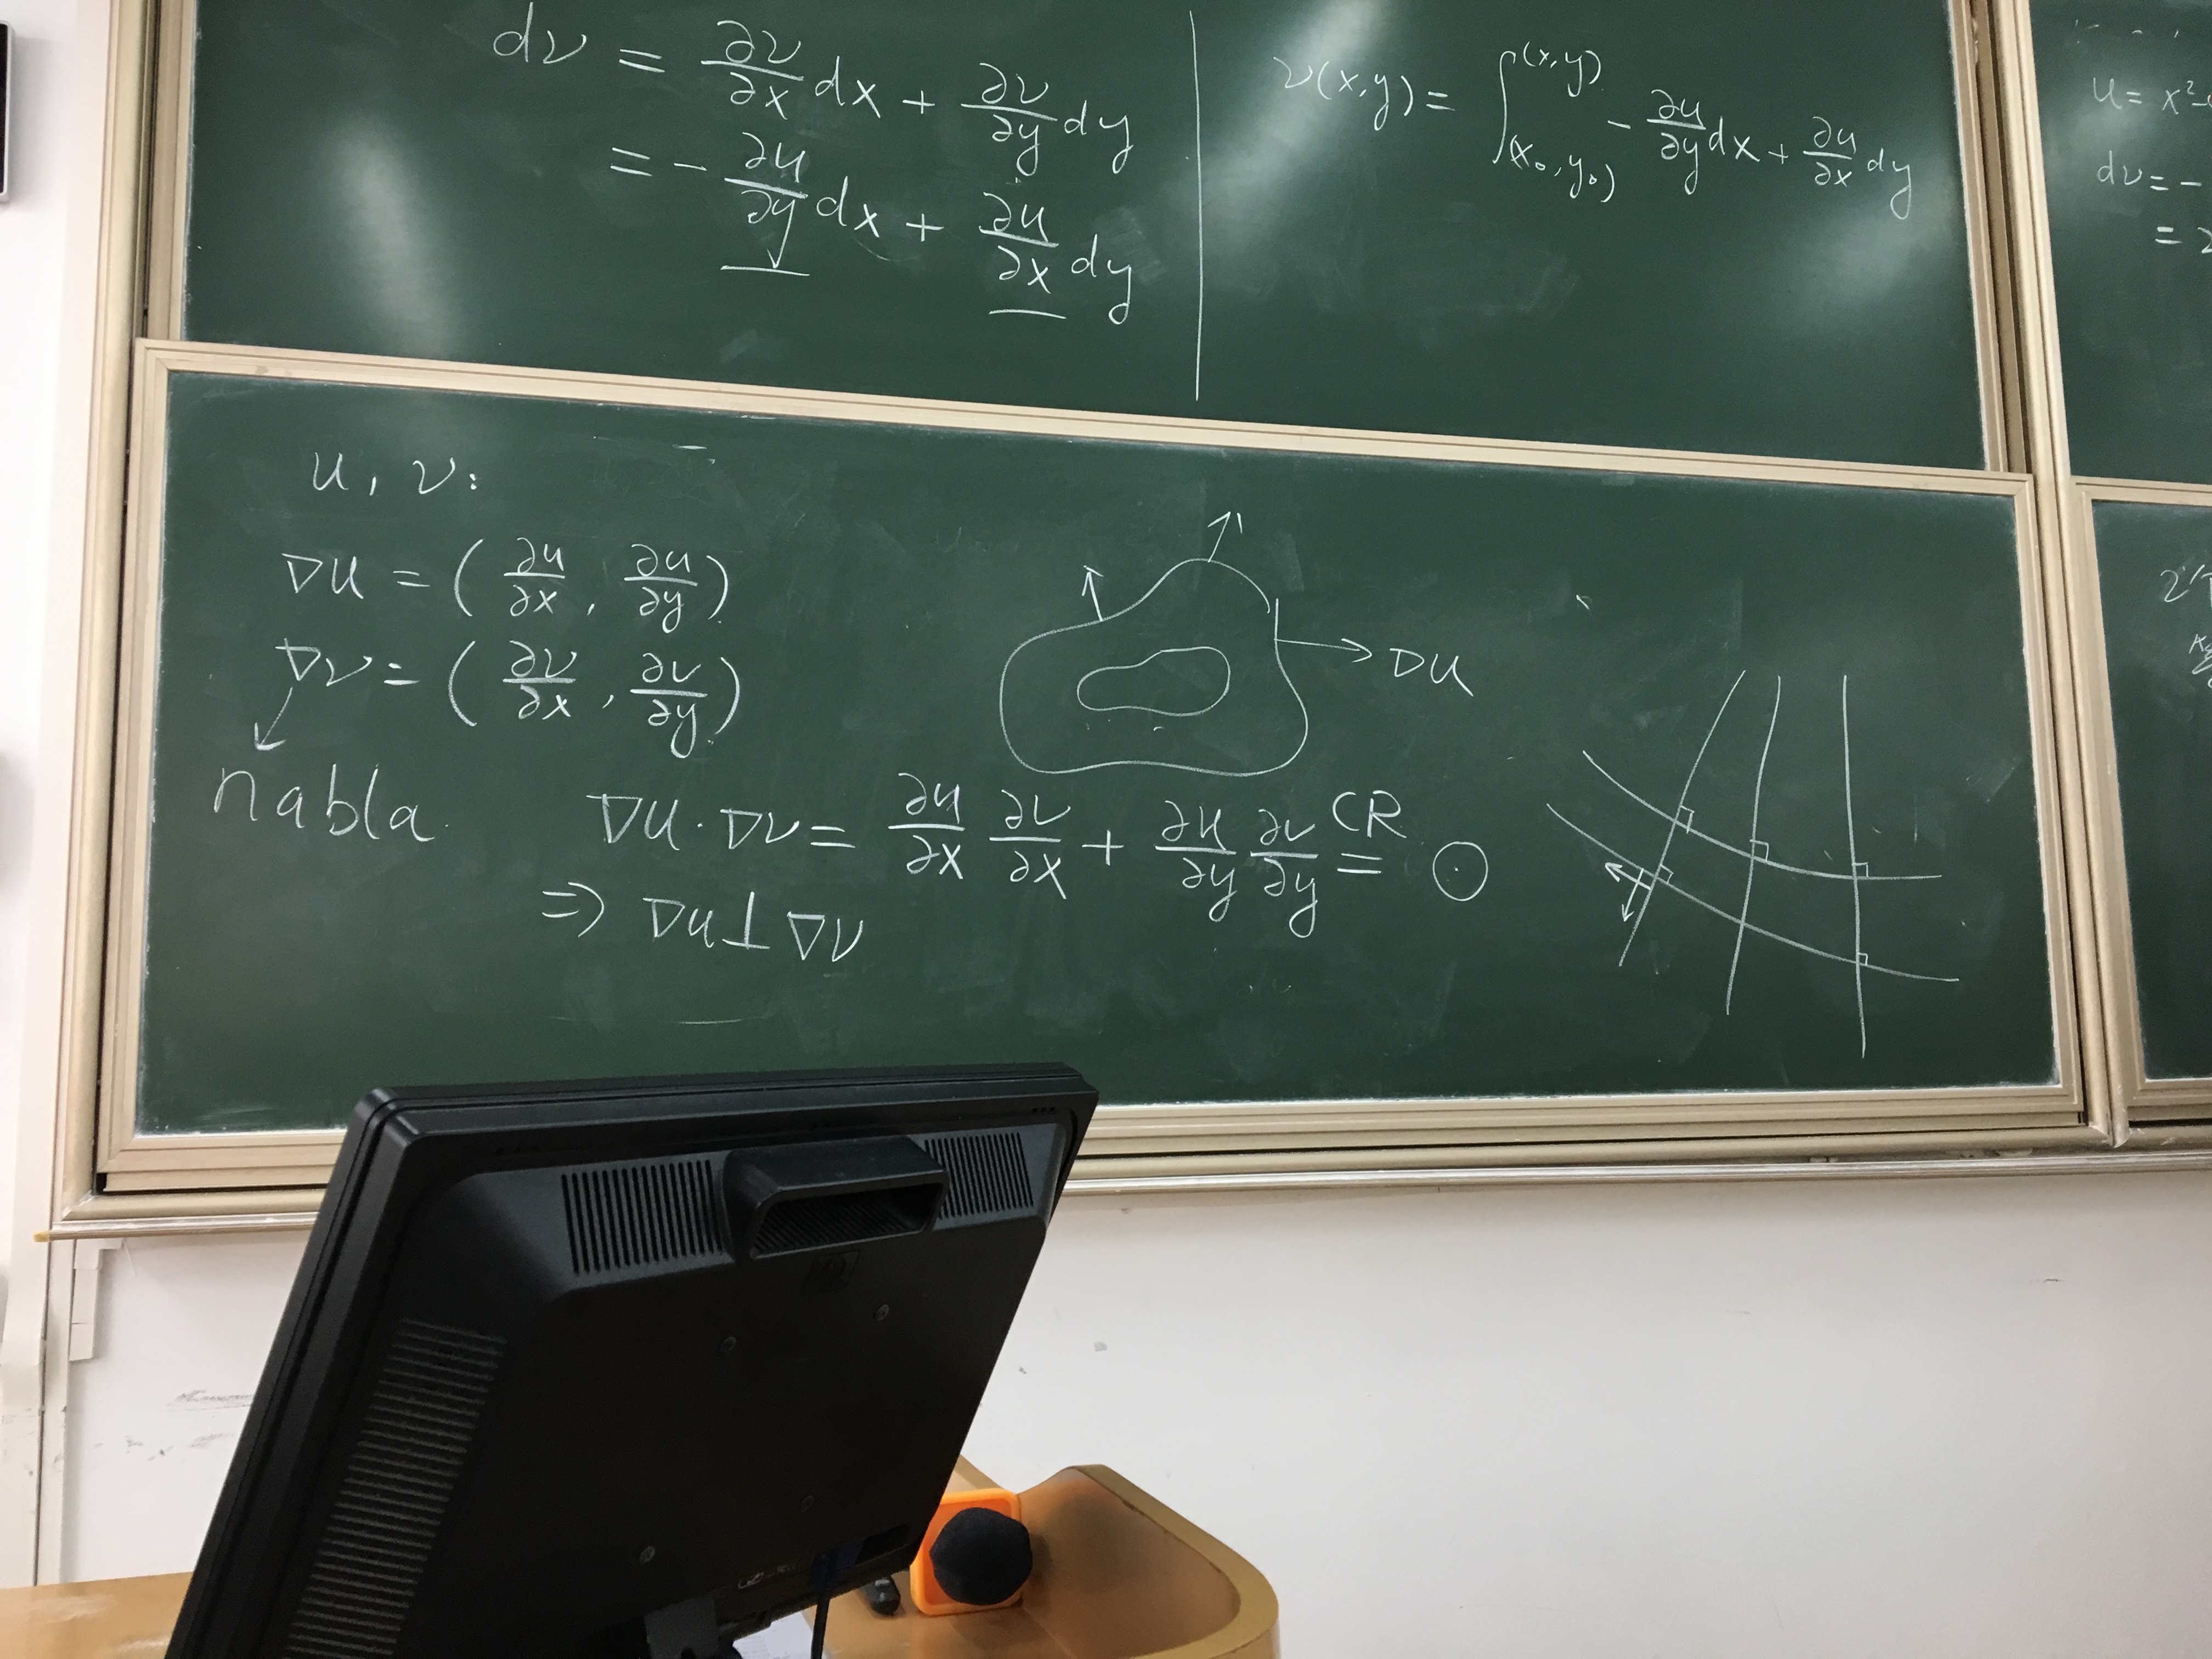 dv = ∂v/∂x dx + ∂v/∂y dy
= - ∂u/∂y dx + ∂u/∂x dy
v(x,y) = ∫_(x₀,y₀)^(x,y) - ∂u/∂y dx + ∂u/∂x dy
u = x²-
dv = -
= 2
u, v:
∇u = (∂u/∂x, ∂u/∂y)
∇v = (∂v/∂x, ∂v/∂y)
nabla
∇u
∇u · ∇v = ∂u/∂x ∂v/∂x + ∂u/∂y ∂v/∂y CR = 0
⇒ ∇u ⊥ ∇v